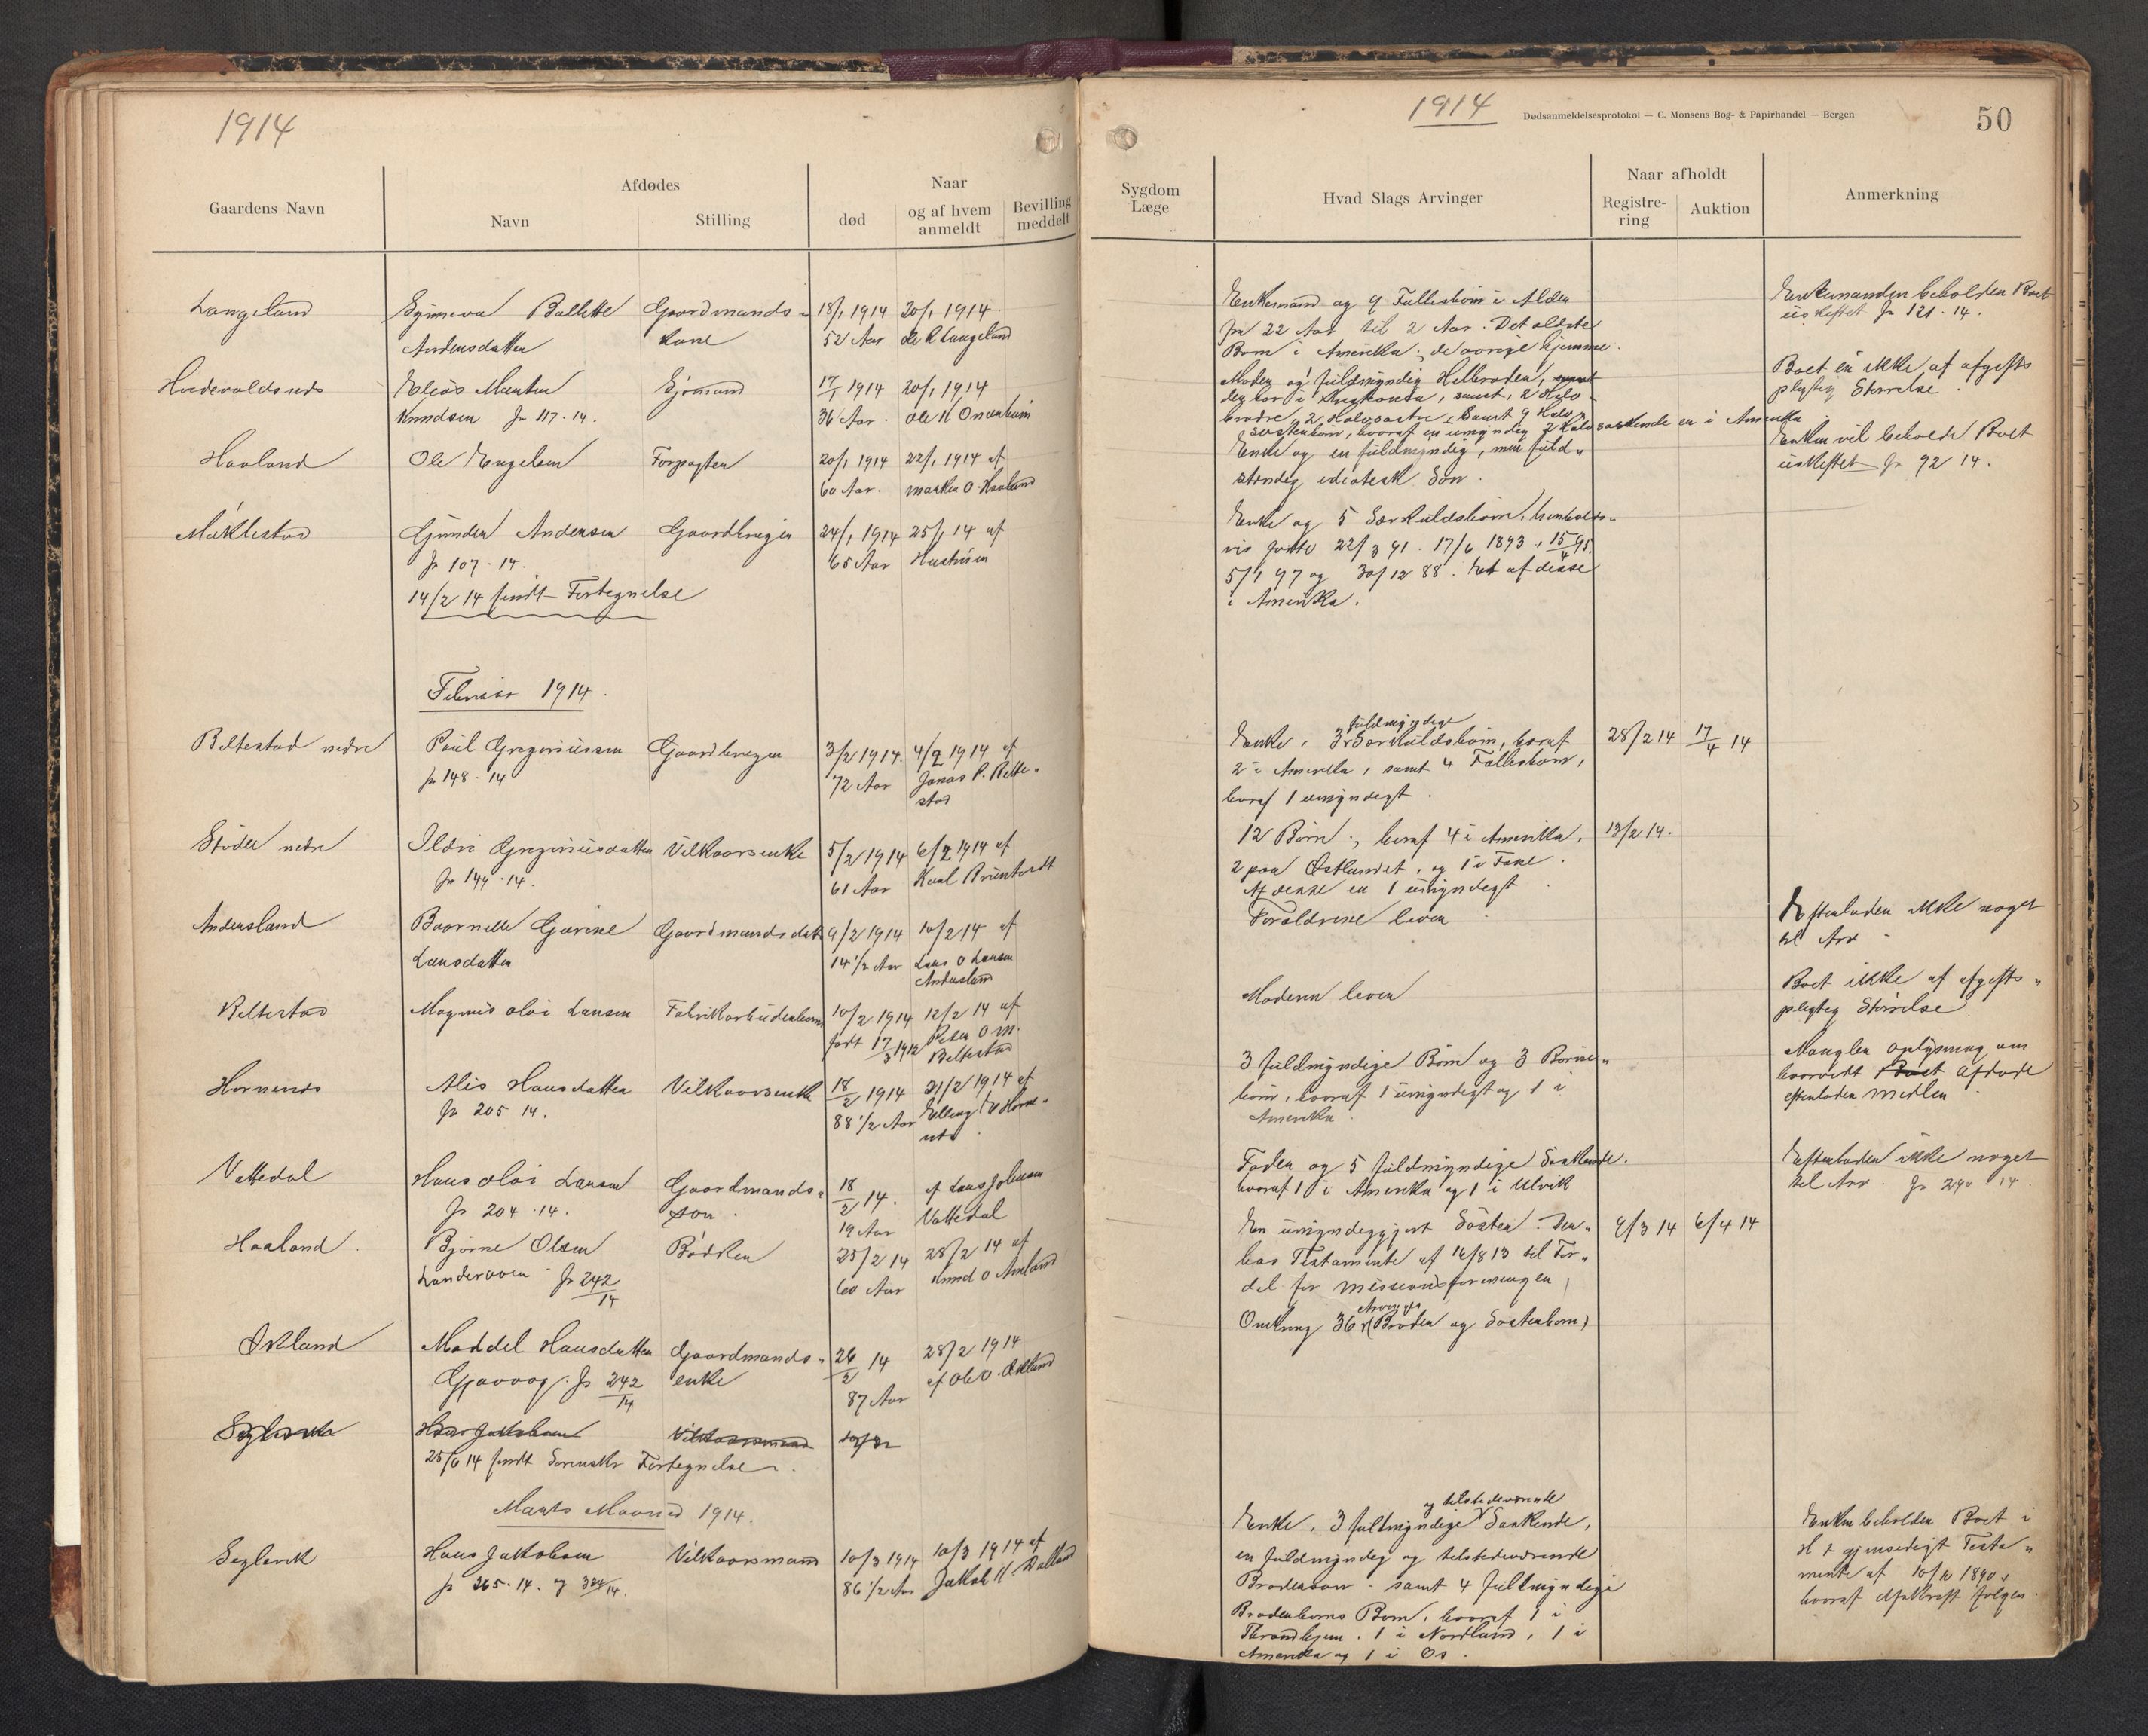 1914
Gaardens Navn
Afdødes
Navn
Stilling
død
Naar
og af hvem
anmeldt
Bevilling
meddelt
Langeland
Synneva Bollette
Andersdatter
Gaardmands-
kone
18/1 1914
52 Aar
20/1 1914
Ole R Langeland
Elias Martin
Knudsen Jr 117.14.
Sjømand
17/1 1914
36 Aar.
20/1 1914
Haaland
Ole Engelsen
Forpagter
20/1 1914
60 Aar.
22/1 1914 af
O. Haaland
Gunder Andersen
Jr 107.14.
14/2 14 sendt Fortegnelse
Gaardbruger
24/1 1914
65 Aar
25/1 14 af
Hustruen
Februar 1914.
Beltestad nedre
Paul Gregoriussen
Jr 148.14
Gaardbruger
3/2 1914.
72 Aar
4/2 1914 af
Jonas P. Belte-
stad
nedre
Ildri Gregoriusdatter
Jr 144.14.
Vilkaarsenke
5/2 1914
61 Aar
6/2 1914 af
Andersland
Gurine
Larsdatter
Gaardmandsdat
9/2 1914
14 1/2 Aar
10/2 14 af
Lars O Larsen
Andersland
Beltestad
Magnus Olai Larsen
Fabrikarbeiderbarn
10/2 1914
født 17/3 1912
12/2 14 af
Peder O M.
Beltestad
Hornenes
Alis Hansdatter
Jr 205 14.
Vilkaarsenke
18/2 1914
88 1/2 Aar
21/2 1914 af
Vattedal
Hans Olai Larsen
Jr 204.14.
Gaardmands-
søn.
18/2 14.
19 Aar
af Lars Johnsen
Vattedal
Haaland.
Bjørne Olsen
Jr 242/14
Bødker
25/2 14
60 Aar
28/2 14 af
Øvland
Maddel Hansdatter
Gjøvaag. Jr 242/14
Gaardmands-
enke
26/2 14
87 Aar
28/2 1914
af Ole O.
Hans Jakobsen
Vilkaarsmand
25/6 14 sendt Sorenskr Fortegnelse.
Marts Maaned 1914.
Seglevik
Hans Jakobsen
Jr 265.14. og 324/14.
Vilkaarsmand
10/3 1914
86 1/2 Aar
10/3 1914 af
Jakob H
1914
Dødsanmeldelsesprotokol — C. Monsens Bog- & Papirhandel — Bergen
50
Sygdom
Læge
Hvad Slags Arvinger
Naar afholdt
Registre-
ring
Auktion
Anmerkning
Enkemand og 9 Fællesbørn i Alder
fra 22 Aar til 2 Aar. Det ældste
Barn i Amerika; de øvrige hjemme.
Enkemanden beholder Boet
uskiftet Jr 121.14.
Moder og fuldmyndig Helbroder,
der bor i samt 2 Halv-
brødre, 2 Halvsøstre, samt 9 Halv-
søsterbørn, hvoraf en umyndig 2 Halvsøskende er i Amerika
Boet er ikke af afgifts
pligtig Størrelse.
Enke og en fuldmyndig, men fuld-
stændig idiotisk Søn.
Enken vil beholde Boet
uskiftet Jr 92 14.
Enke og 5 Særkuldsbørn, henholds-
vis fødte 22/3 91. 17/6 1893, 15/4 95.
5/1 97 og 30/12 88. Et af disse
i Amerika.
Enke, 3 fuldmyndige Særkuldsbørn, hvoraf
2 i Amerika, samt 4 Fællesbørn,
hvoraf 1 umyndigt.
28/2 14
17/4 14
12 Børn; hvoraf 4 i Amerika,
2 paa Østlandet, og 1 i Fane.
Af disse er 1 umyndigt
13/2 14.
Forældrene lever
Efterlader ikke noget
til Arv
Moderen lever
Boet ikke af afgifts-
pligtig Størrelse.
3 fuldmyndige Børn og 3 Børne-
børn, hvoraf 1 umyndigt og 1 i
Amerika
Mangler oplysning om
hvorvidt Boet Afdøde
efterlader midler
Fader og 5 fuldmyndige Søskende.
hvoraf 1 i Amerika og 1 i Ulvik
Efterlader ikke noget
til Arv. Jr 290 14.
En umyndiggjort Søster. Der-
hos Testamente af 16/8 13 til For-
del for missionsforeningen
9/3 14
6/4 14
Omkring 36 Arvinger (Brøder og Søsterbørn)
Enke, 3 fuldmyndige og tilstedeværende Søskende,
en fuldmyndig og tilstedeværende
Brodersøn - samt 4 fuldmyndige
Broderbørns Børn, hvoraf 1 i
Throndhjem, 1 i Nordland, 1 i
Amerika og 1 i Os.
Enken beholder Boet i
H t gjensidigt Testa-
mente af 10/10 1890,
hvoraf Afskrift følger.